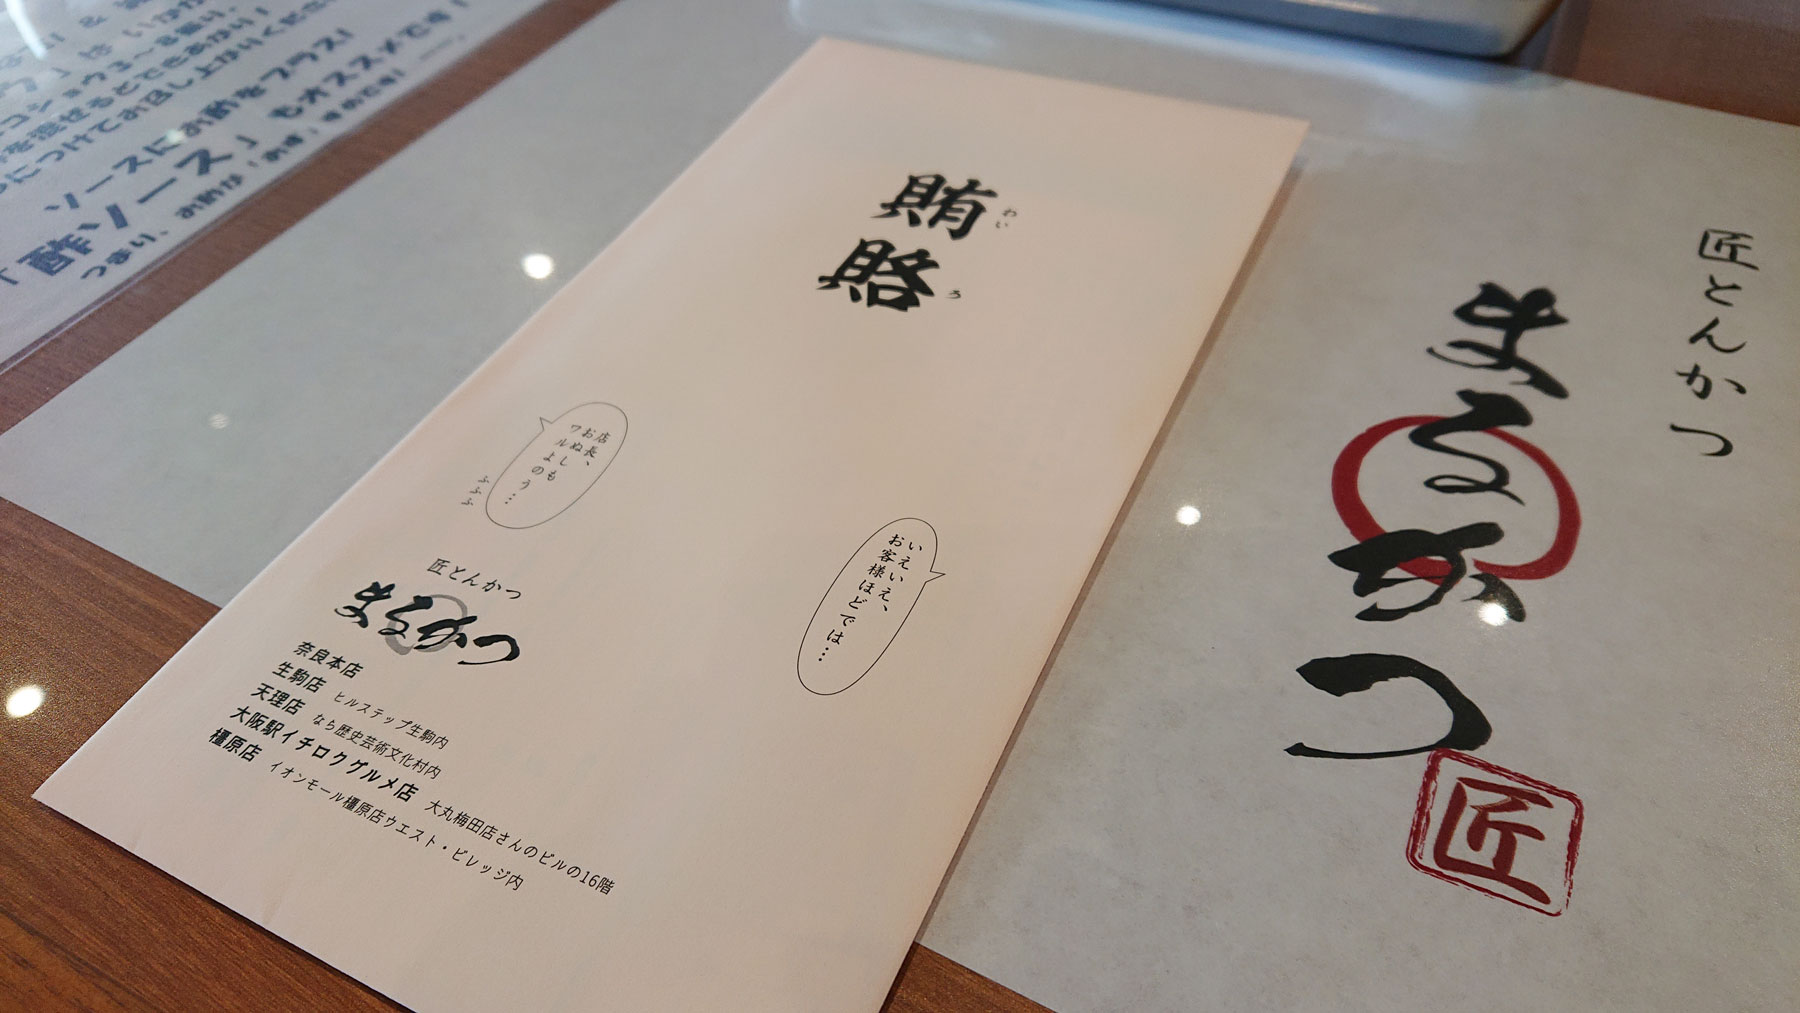 ソースにお酢をプラス!
「酢ソース」もオススメです!
つまり、お酢が「おす」すめです!
につけてお召し上がりくださ
賄賂
わいろ
店長、
おぬしも
ワルよのう…
ふふふ
いえいえ、
お客様ほどでは…
匠とんかつ
まるかつ
奈良本店
生駒店 ヒルステップ生駒内
天理店 なら歴史芸術文化村内
大阪駅イチロクグルメ店 大丸梅田店さんのビルの16階
橿原店 イオンモール橿原店ウエスト・ビレッジ内
匠とんかつ
まるかつ
匠